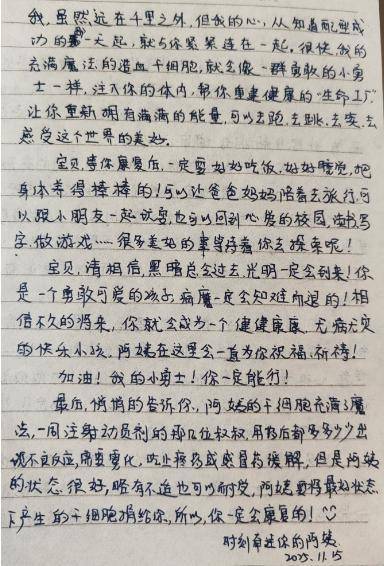 我,虽然远在千里之外,但我的心,从知道配型成
功的那一天起,就与你紧紧连在一起。很快,我的
充满魔法的造血干细胞,就会像一群勇敢的小勇
士一样,注入你的体内,帮你重建健康的“生命工厂”
让你重新拥有满满的能量,可以去跑、去跳、去笑、去
感受这个世界的美好。
宝贝,等你康复后,一定要好好吃饭、好好睡觉,把
身体养得棒棒的!可以让爸爸妈妈陪着去旅行,可
以跟小朋友一起玩耍,也可以回到心爱的校园,读书写
字、做游戏……很多美好的事等待着你去探索呢!
宝贝,请相信,黑暗总会过去,光明一定会到来!你
是一个勇敢可爱的孩子,病魔一定会知难而退的!相
信不久的将来,你就会成为一个健健康康、无病无灾
的快乐小孩。阿姨在这里会一直为你祝福、祈祷!
加油!我的小勇士!你一定能行!
最后,悄悄的告诉你,阿姨的干细胞充满了魔
法,一同注射动员剂的那几位叔叔,用药后都多多少少出
现不良反应,需要吃止疼药或感冒药缓解,但是阿姨
的状态很好,略有不适也可以耐受,阿姨要将最好状态
下产生的干细胞捐给你,所以,你一定会康复的!
时刻牵挂你的阿姨
2025.11.15